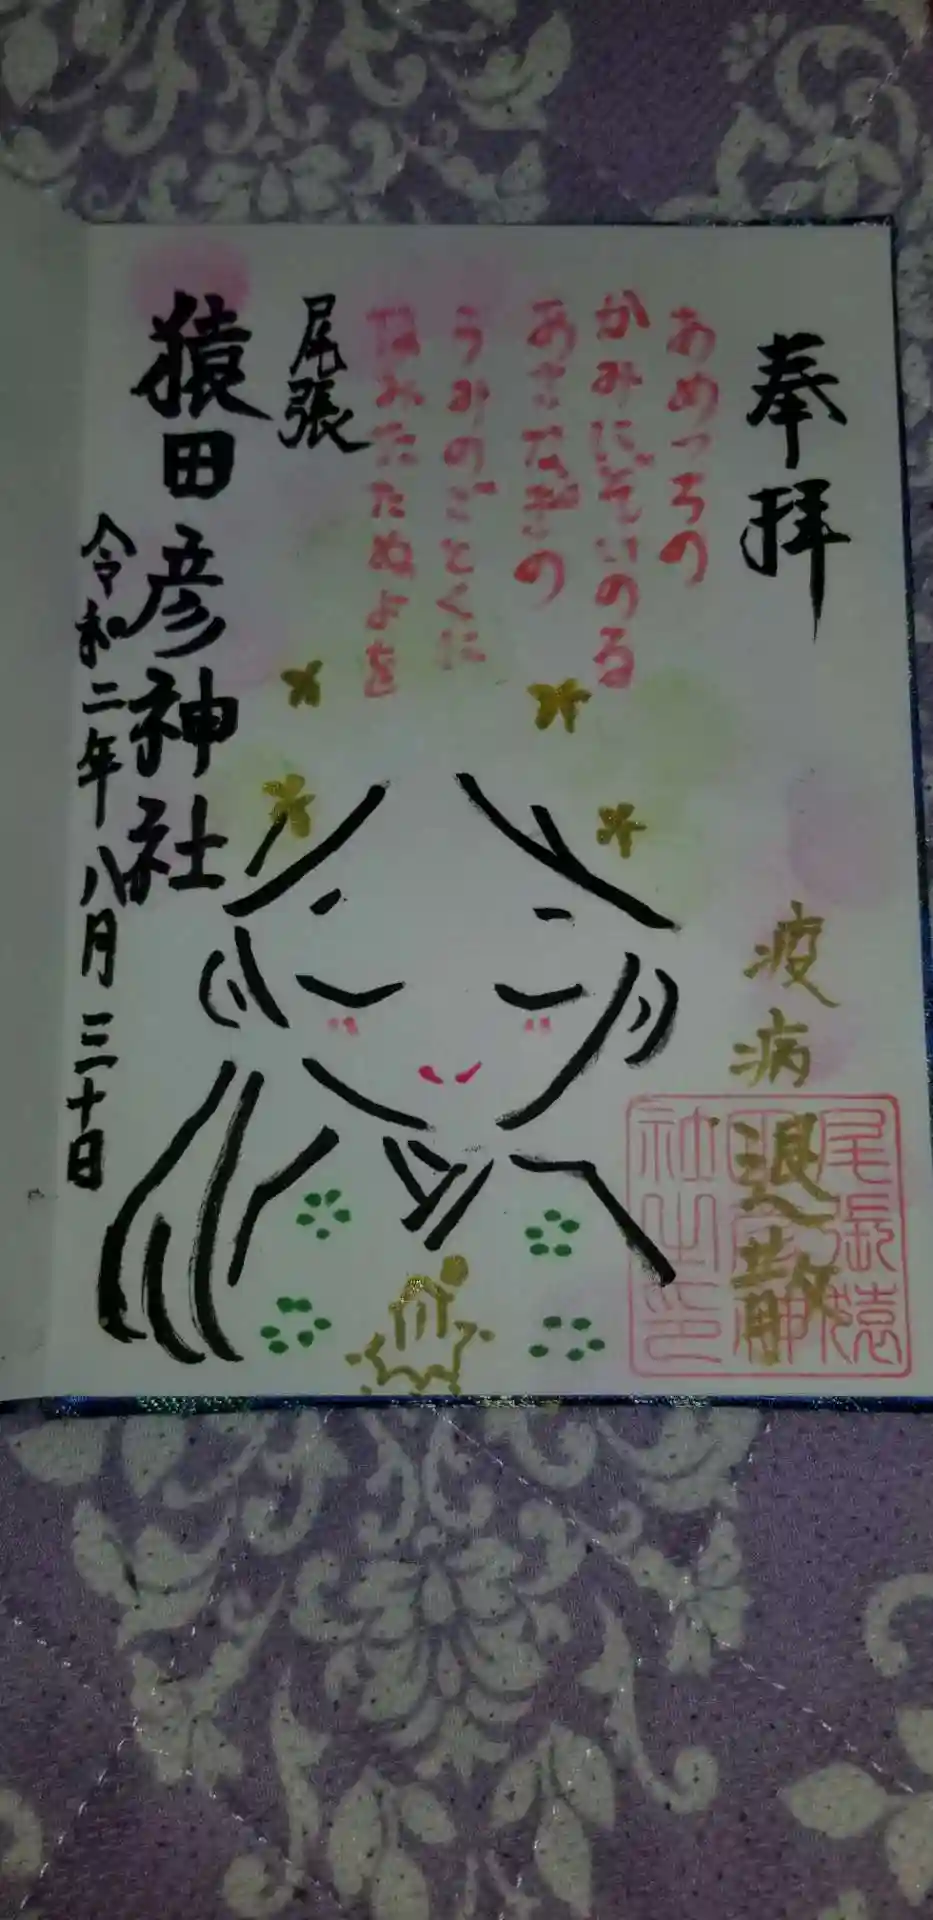 奉拝
あめつちの
かみにぞいのる
あさなぎの
うみのごとくに
なみたたぬよを
尾張
猿田彦神社
令和二年八月三十日
疫病
退散
尾張猿
田彦神
社之印